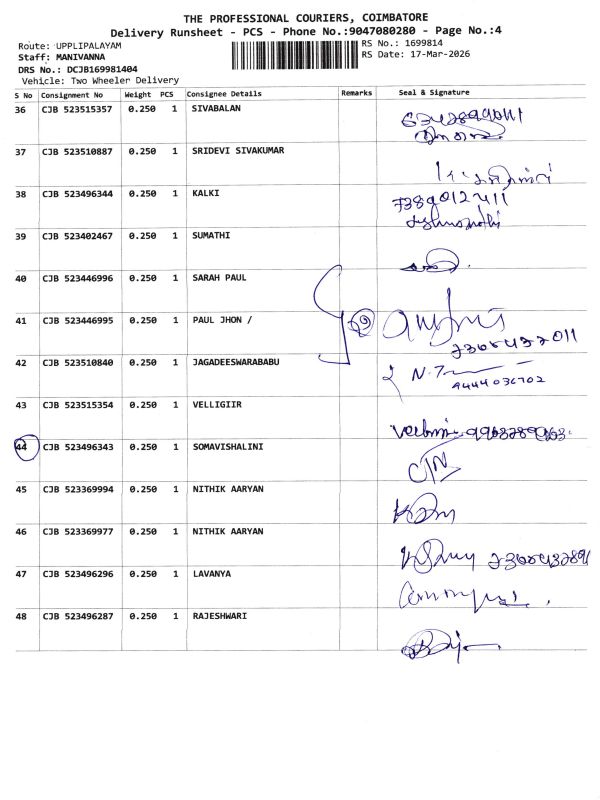 THE PROFESSIONAL COURIERS, COIMBATORE
Delivery Runsheet - PCS - Phone No.:9047080280 - Page No.:4
Route: UPPLIPALAYAM
Staff: MANIVANNA
DRS No.: DCJB169981404
Vehicle: Two Wheeler Delivery
RS No.: 1699814
RS Date: 17-Mar-2026
S No Consignment No Weight PCS Consignee Details Remarks Seal & Signature
36 CJB 523515357 0.250 1 SIVABALAN
37 CJB 523510887 0.250 1 SRIDEVI SIVAKUMAR
38 CJB 523496344 0.250 1 KALKI
39 CJB 523402467 0.250 1 SUMATHI
40 CJB 523446996 0.250 1 SARAH PAUL
41 CJB 523446995 0.250 1 PAUL JHON /
42 CJB 523510840 0.250 1 JAGADEESWARABABU
9444036702
43 CJB 523515354 0.250 1 VELLIGIIR
44 CJB 523496343 0.250 1 SOMAVISHALINI
45 CJB 523369994 0.250 1 NITHIK AARYAN
46 CJB 523369977 0.250 1 NITHIK AARYAN
47 CJB 523496296 0.250 1 LAVANYA
48 CJB 523496287 0.250 1 RAJESHWARI